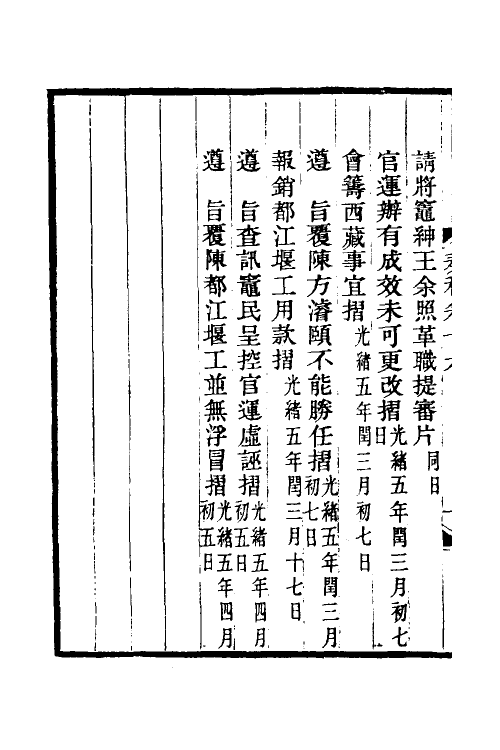 請將竈紳王余照革職提審片同日
官運辦有成效未可更改摺光緒五年閏三月初七日
會籌西藏事宜摺光緒五年閏三月初七日
遵　旨覆陳方濬頤不能勝任摺光緒五年閏三月初七日
報銷都江堰工用款摺光緒五年閏三月十七日
遵　旨查訊竈民呈控官運虛誣摺光緒五年四月初五日
遵　旨覆陳都江堰工並無浮冒摺光緒五年四月初五日